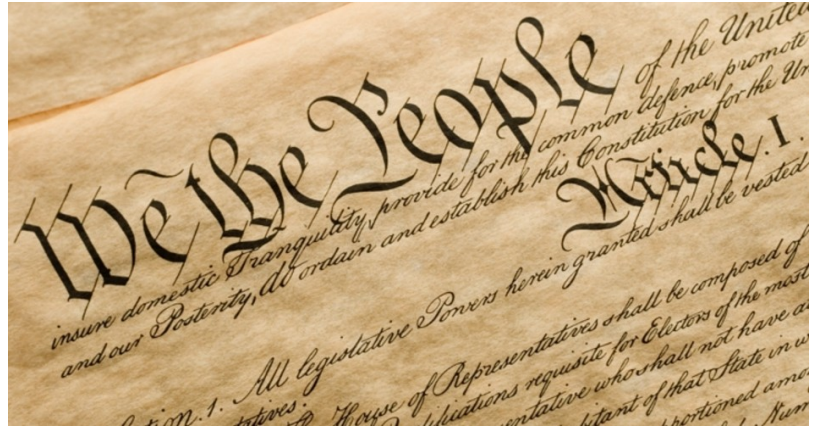 We the People of the United
insure domestic Tranquility, provide for the common defence, promote
and our Posterity, do ordain and establish this Constitution for the Un
Article. I.
ction. 1. All legislative Powers herein granted shall be vested
tatives. House of Representatives shall be composed of
lifications requisite for Electors of the most
entative who shall not have a
bitant of that State in w
portioned amo
Num